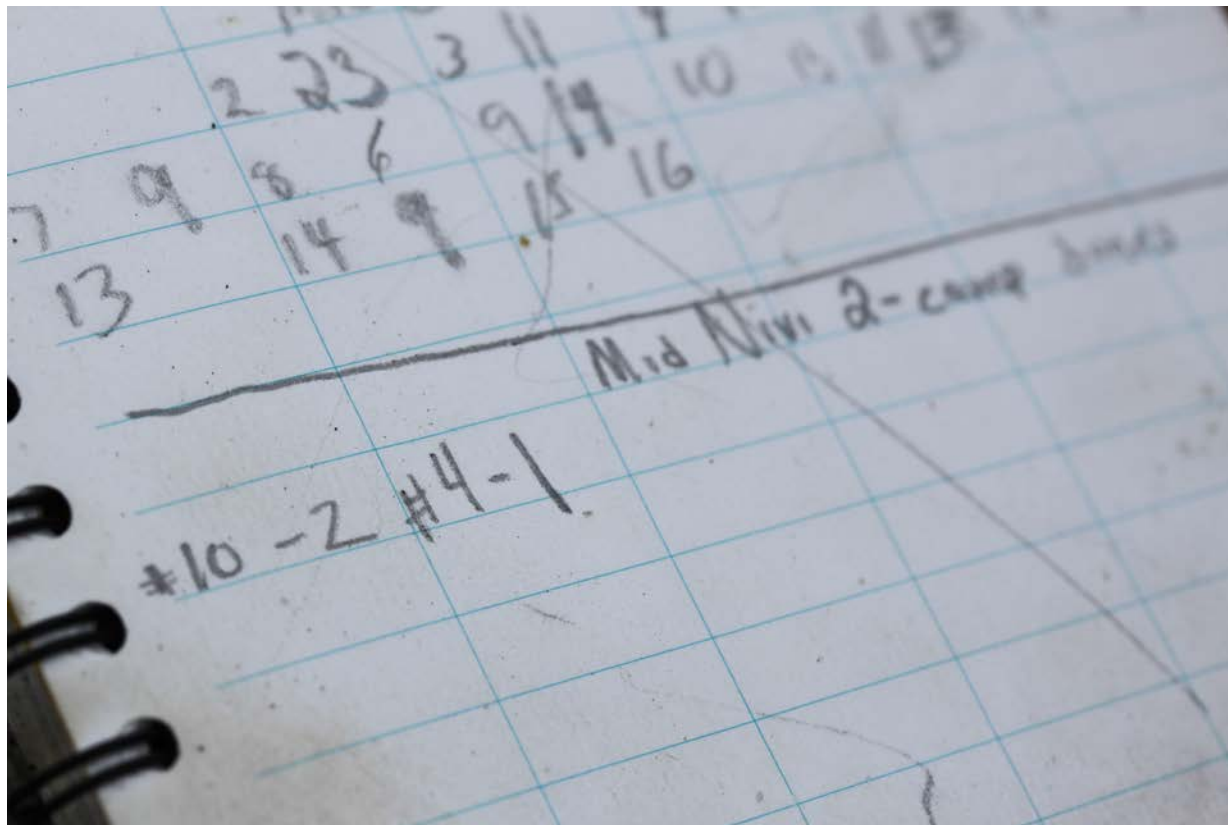 2 23 3 11
7 9 8 6 9 14 10 13
13 14 9 15 16
Mid Nivi 2-camp
#10-2 #4-1